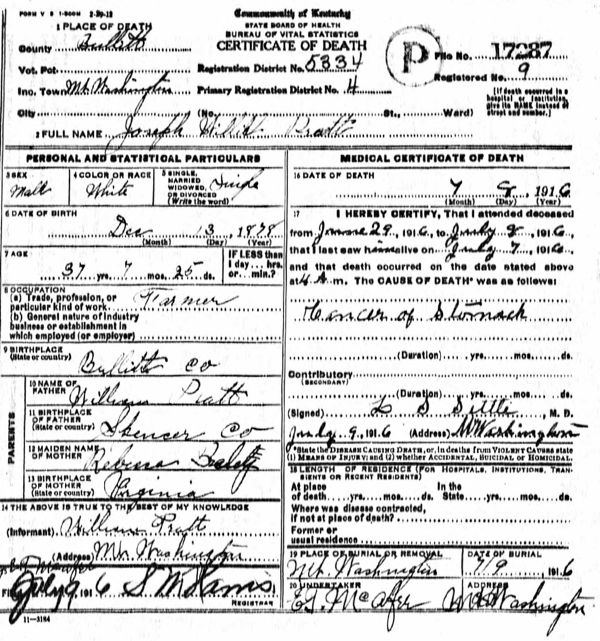 FORM V S 1-500M 2-29-12
Commonwealth of Kentucky
STATE BOARD OF HEALTH
BUREAU OF VITAL STATISTICS
CERTIFICATE OF DEATH
1 PLACE OF DEATH
County Bullitt
Vot. Pct.
Inc. Town Mt. Washington
City (No. St., Ward)
Registration District No. 5334
Primary Registration District No. 4
P
File No. 17287
Registered No. 9
[If death occurred in a
hospital or institution,
give its NAME instead of
street and number.]
2 FULL NAME Joseph Pratt
PERSONAL AND STATISTICAL PARTICULARS
3 SEX Male
4 COLOR OR RACE White
5 SINGLE, MARRIED WIDOWED, OR DIVORCED (Write the word) Single
6 DATE OF BIRTH
Dec 13 1878
(Month) (Day) (Year)
7 AGE
37 yrs. 7 mos. 25 ds.
IF LESS than
1 day... hrs.
or... min.?
8 OCCUPATION
(a) Trade, profession, or
particular kind of work Farmer
(b) General nature of industry
business or establishment in
which employed (or employer)
9 BIRTHPLACE
(State or country) Bullitt Co
PARENTS
10 NAME OF
FATHER William Pratt
11 BIRTHPLACE
OF FATHER
(State or country) Spencer Co
12 MAIDEN NAME
OF MOTHER Rebecca
13 BIRTHPLACE
OF MOTHER
(State or country) Virginia
14 THE ABOVE IS TRUE TO THE BEST OF MY KNOWLEDGE
(Informant) William Pratt
(Address) Mt. Washington
July 9 1916 S W
REGISTRAR
11-3184
MEDICAL CERTIFICATE OF DEATH
16 DATE OF DEATH
7 8, 1916
(Month) (Day) (Year)
17 I HEREBY CERTIFY, That I attended deceased
from 29, 1916, to July 8, 1916,
that I last saw him alive on July 7, 1916,
and that death occurred on the date stated above
at 4 A.m. The CAUSE OF DEATH* was as follows:
Cancer of Stomach
(Duration) yrs. mos. ds.
Contributory
(SECONDARY)
(Duration) yrs. mos. ds.
(Signed) M. D.
July 9, 1916 (Address) Mt Washington
*State the DISEASE CAUSING DEATH, or, in deaths from VIOLENT CAUSES state
(1) MEANS OF INJURY; and (2) whether ACCIDENTAL, SUICIDAL or HOMICIDAL.
18 LENGTH OF RESIDENCE (FOR HOSPITALS, INSTITUTIONS, TRANSIENTS OR RECENT RESIDENTS)
At place In the
of death yrs. mos. ds. State yrs. mos. ds.
Where was disease contracted,
if not at place of death?
Former or
usual residence
19 PLACE OF BURIAL OR REMOVAL
Mt. Washington
DATE OF BURIAL
7/9 1916
20 UNDERTAKER
ADDRESS
Mt Washington